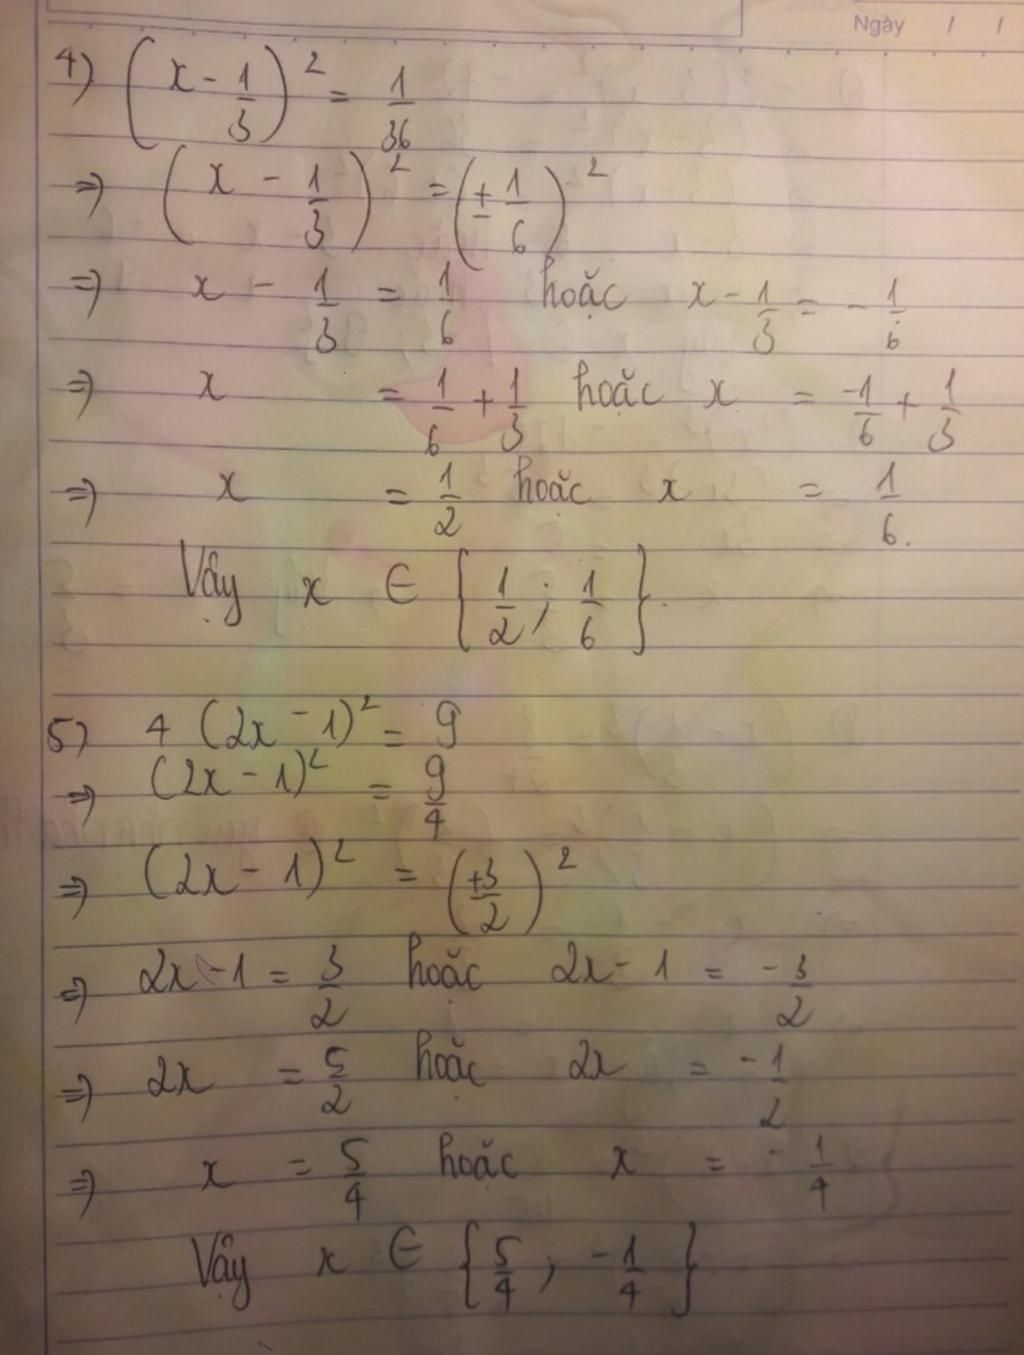 Ngày / /
4) (x - 1/3)² = 1/36
=> (x - 1/3)² = (± 1/6)²
=> x - 1/3 = 1/6 hoặc x - 1/3 = - 1/6
=> x = 1/6 + 1/3 hoặc x = -1/6 + 1/3
=> x = 1/2 hoặc x = 1/6.
Vậy x ∈ {1/2 ; 1/6}.
5) 4 (2x - 1)² = 9
=> (2x - 1)² = 9/4
=> (2x - 1)² = (±3/2)²
=> 2x - 1 = 3/2 hoặc 2x - 1 = -3/2
=> 2x = 5/2 hoặc 2x = -1/2
=> x = 5/4 hoặc x = -1/4
Vậy x ∈ {5/4 ; -1/4}